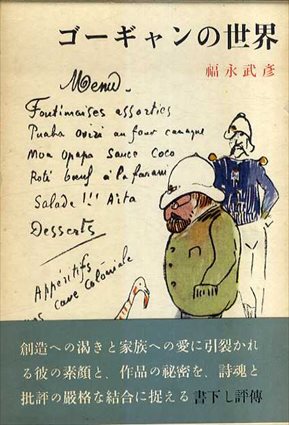 ゴーギャンの世界
福永武彦
Menu.
Foutimaises assorties
Puaha Oviri au four canaque
Moa Opapa Sauce Coco
Roti bœuf à la
Salade !!! Aita
Desserts
Appéritifs
cave coloniale
創造への渇きと家族への愛に引裂かれ
る彼の素顔と、作品の秘密を、詩魂と
批評の厳格な結合に捉える 書下し評傳